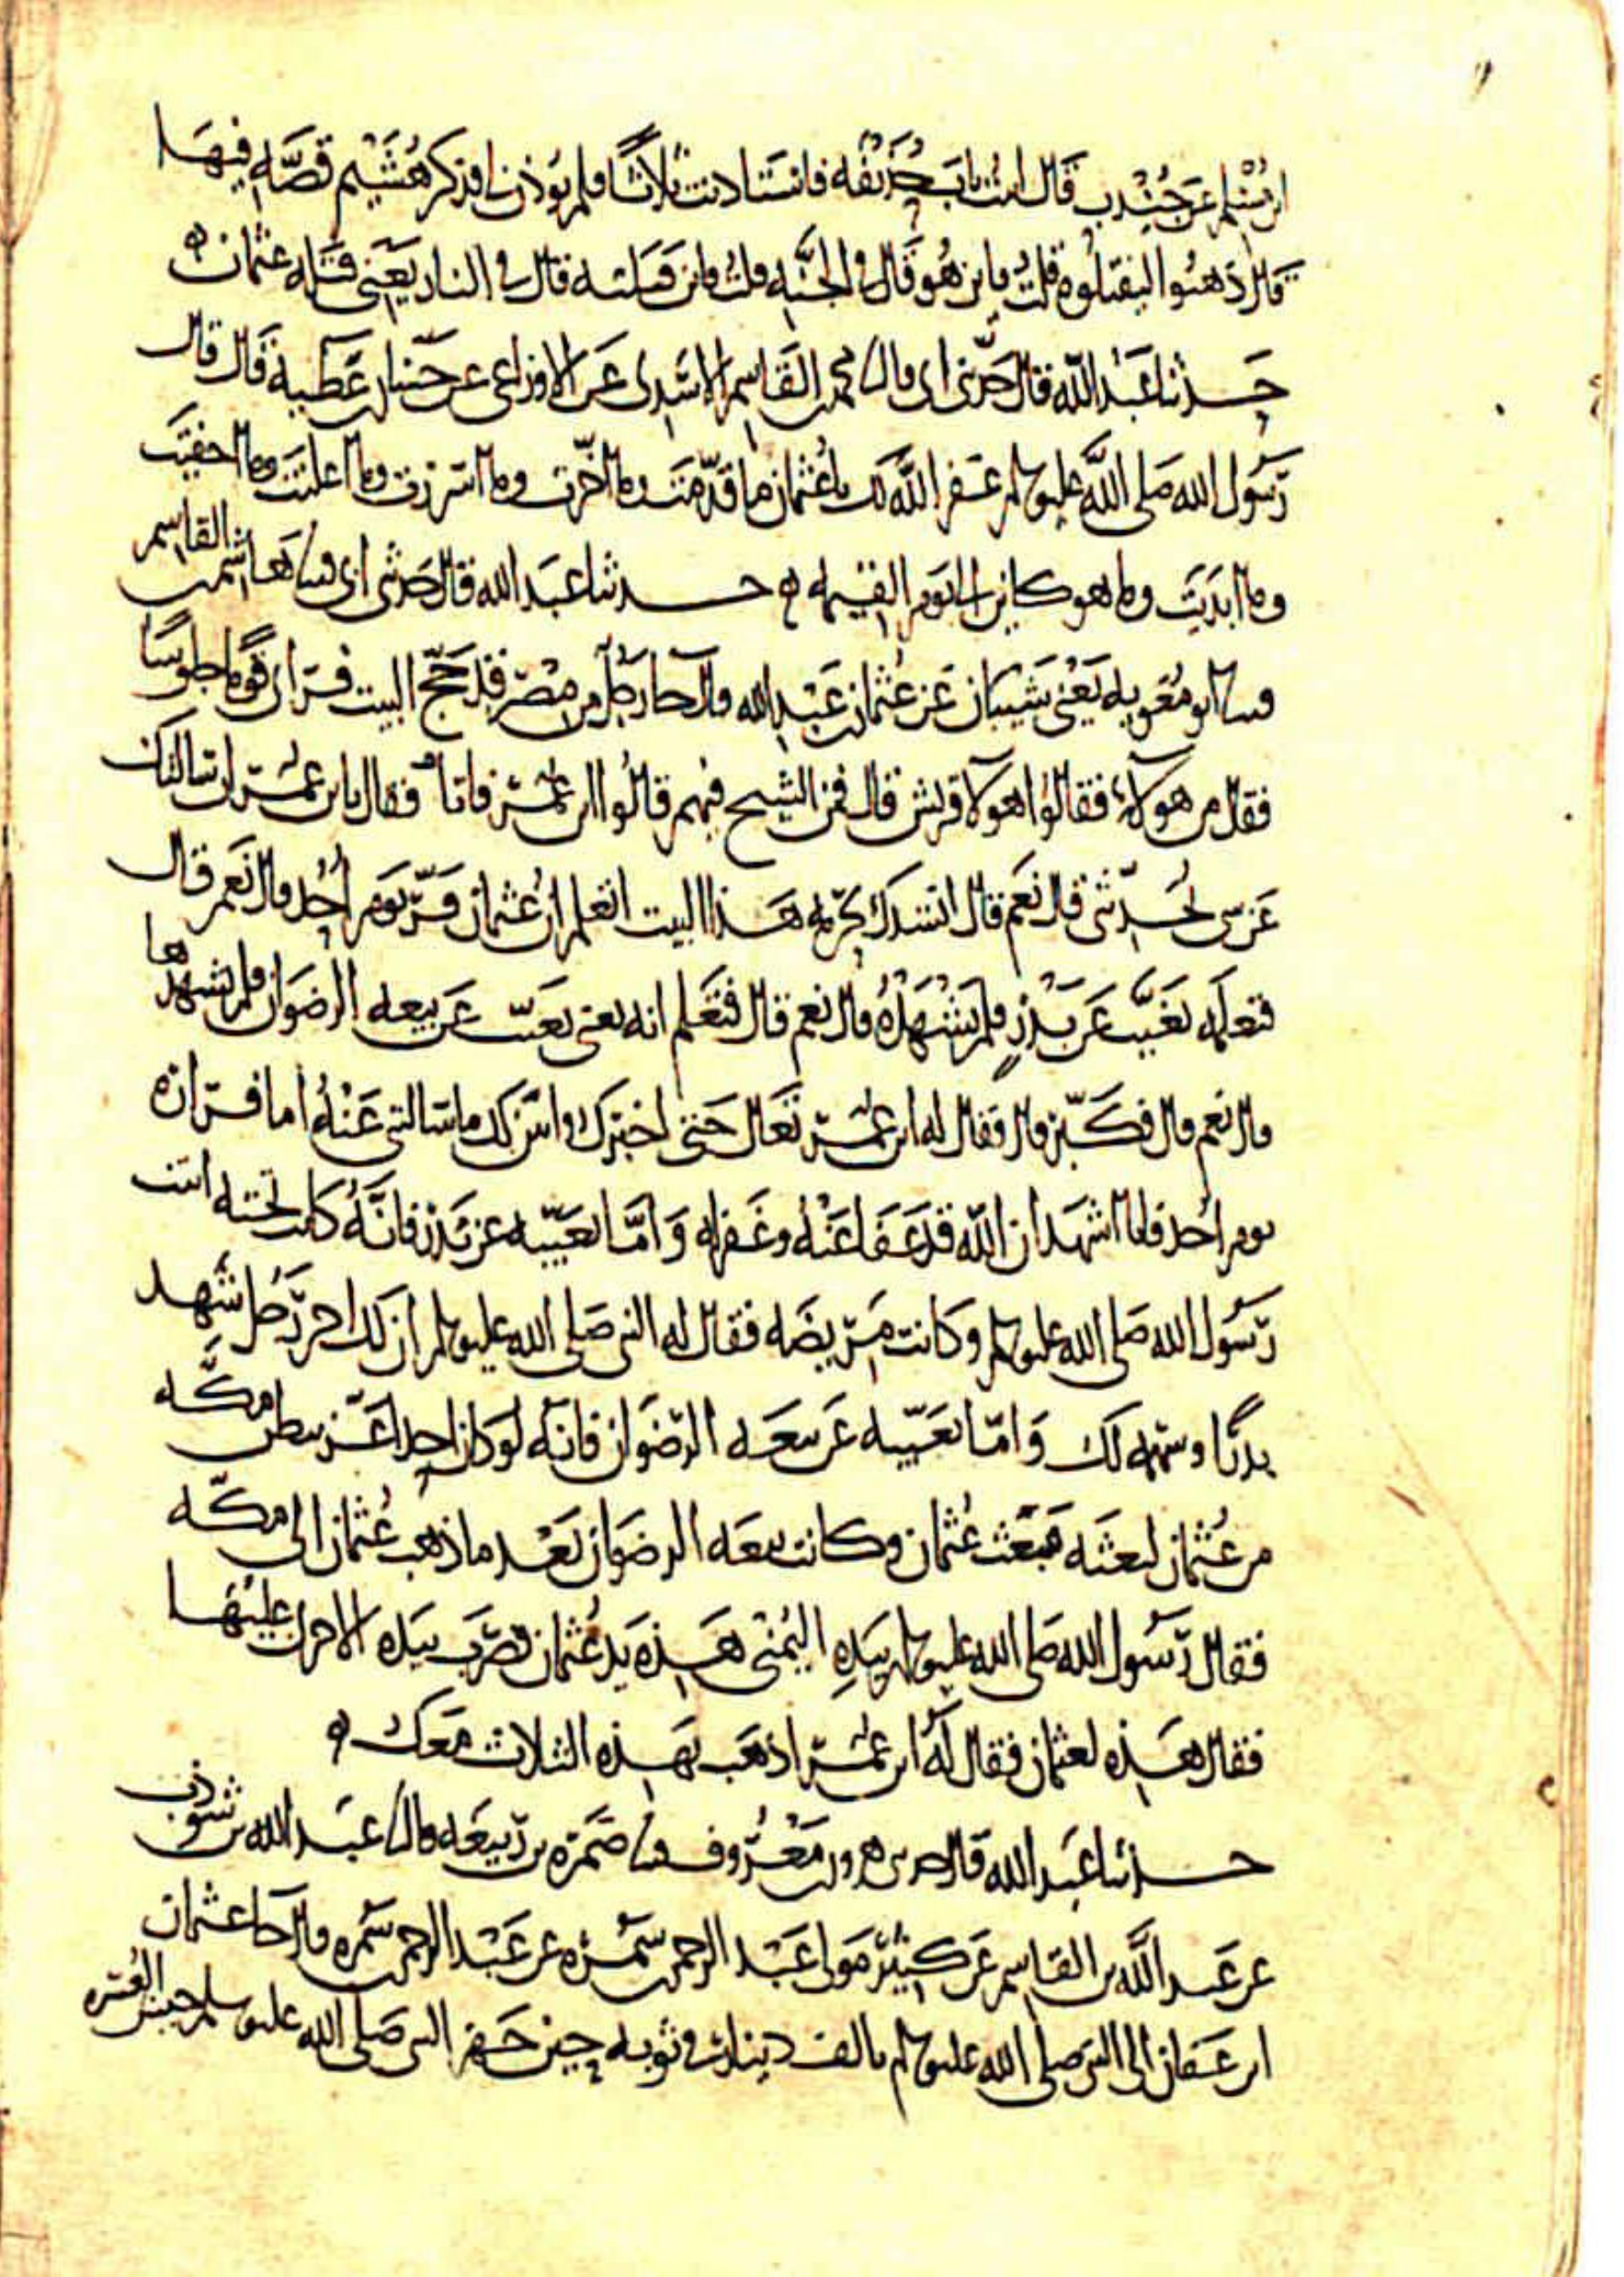 ابن مسلم عن جندب قال اتيت باب حذيفه فاستاذنت ثلاثا فلم يوذن لي فذكر هشيم قصه فيها
قال ذهبوا ليقتلوه قلت فاين هو قال في الجنه قلت فاين قتلته قال في النار يعني قتله عثمان ه
حدثنا عبد الله قال حدثني ابي قال نا محمد بن القاسم الاسدي عن الاوزاعي عن حسان بن عطيه قال قال
رسول الله صلى الله عليه وسلم غفر الله لك يا عثمان ما قدمت وما اخرت وما اسررت وما اعلنت وما اخفيت
وما ابديت وما هو كاين الى يوم القيمه ه حدثنا عبد الله قال حدثني ابي قثنا هاشم بن القاسم
قثنا ابو معويه يعني شيبان عن عثمان بن عبد الله قال جا رجل من مصر قد حج البيت فراى قوما جلوسا
فقال من هولاء فقالوا هولا قريش قال فمن الشيخ فيهم قالوا ابن عمر فاتاه فقال يابن عمر اني سائلك
عن شي تحدثني قال نعم قال انشدك بحرمه هذا البيت اتعلم ان عثمان فر يوم احد قال نعم قال
فتعلمه تغيب عن بدر فلم يشهده قال نعم قال فتعلم انه يعني تغيب عن بيعه الرضوان فلم يشهدها
قال نعم قال فكبر قال فقال له ابن عمر تعال حتى اخبرك وابين لك ما سالتني عنه اما فراره
يوم احد فانا اشهد ان الله قد عفا عنه وغفر له واما تغيبه عن بدر فانه كانت تحته ابنت
رسول الله صلى الله عليه وسلم وكانت مريضه فقال له النبي صلى الله عليه وسلم ان لك اجر رجل شهد
بدرا وسهمه لك واما تغيبه عن بيعه الرضوان فانه لو كان احد اعز ببطن مكه
من عثمان لبعثه فبعث عثمان وكانت بيعه الرضوان بعد ما ذهب عثمان الى مكه
فقال رسول الله صلى الله عليه وسلم بيده اليمنى هذه يد عثمان فضرب بيده الاخرى عليها
فقال هذه لعثمان فقال له ابن عمر اذهب بهذه الثلاث معك ه
حدثنا عبد الله قال حدثني هرون بن معروف قثنا ضمره بن ربيعه قال نا عبد الله بن شوذب
عن عبد الله بن القاسم عن كثير مولى عبد الرحمن بن سمره عن عبد الرحمن بن سمره قال جا عثمان
ابن عفان الى النبي صلى الله عليه وسلم بالف دينار في ثوبه حين جهز النبي صلى الله عليه وسلم جيش العسره